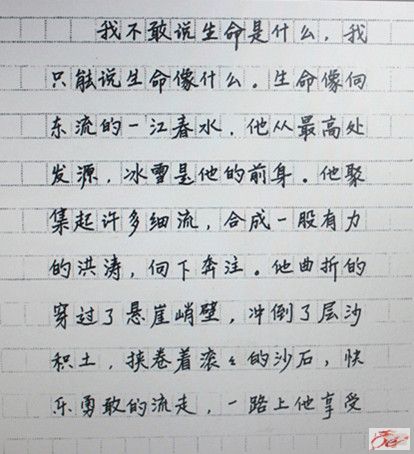 我不敢说生命是什么，我
只能说生命像什么。生命像向
东流的一江春水，他从最高处
发源，冰雪是他的前身。他聚
集起许多细流，合成一股有力
的洪涛，向下奔注。他曲折的
穿过了悬崖峭壁，冲倒了层沙
积土，挟卷着滚々的沙石，快
乐勇敢的流走，一路上他享受